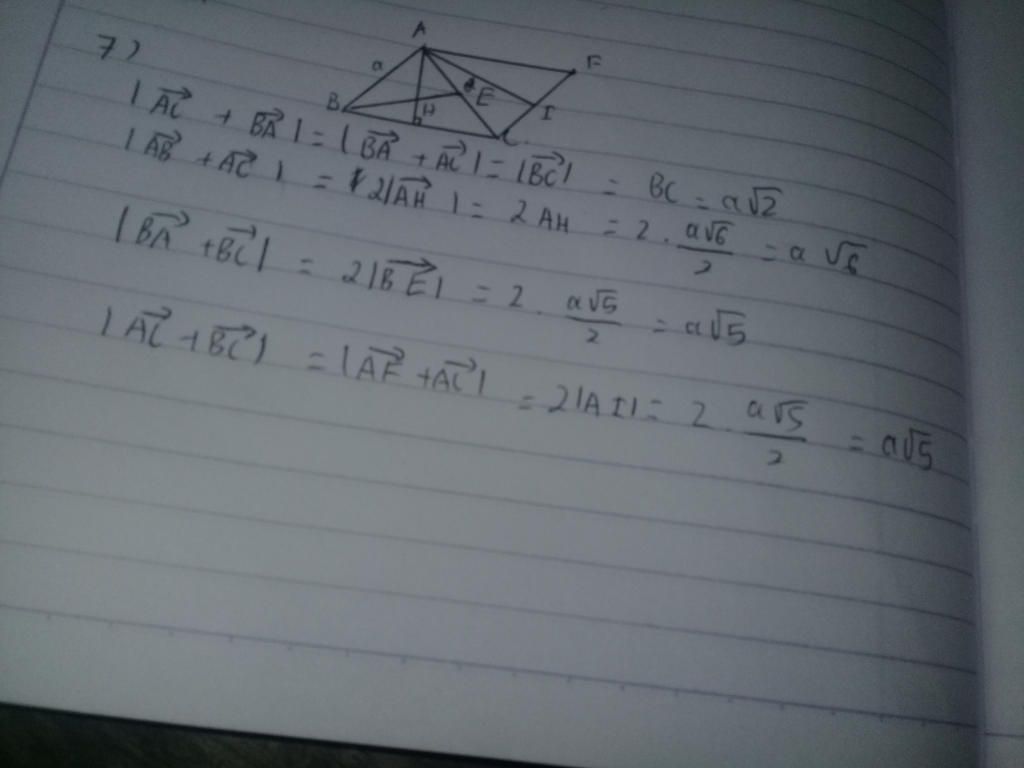 7)
A
F
a
B
H
E
I
C
|AC⃗ + BA⃗| = |BA⃗ + AC⃗| = |BC⃗| = BC = a√2
|AB⃗ + AC⃗| = 2|AH⃗| = 2AH = 2 . a√6/2 = a√6
|BA⃗ + BC⃗| = 2|BE⃗| = 2 . a√5/2 = a√5
|AC⃗ + BC⃗| = |AF⃗ + AC⃗| = 2|AI| = 2 . a√5/2 = a√5